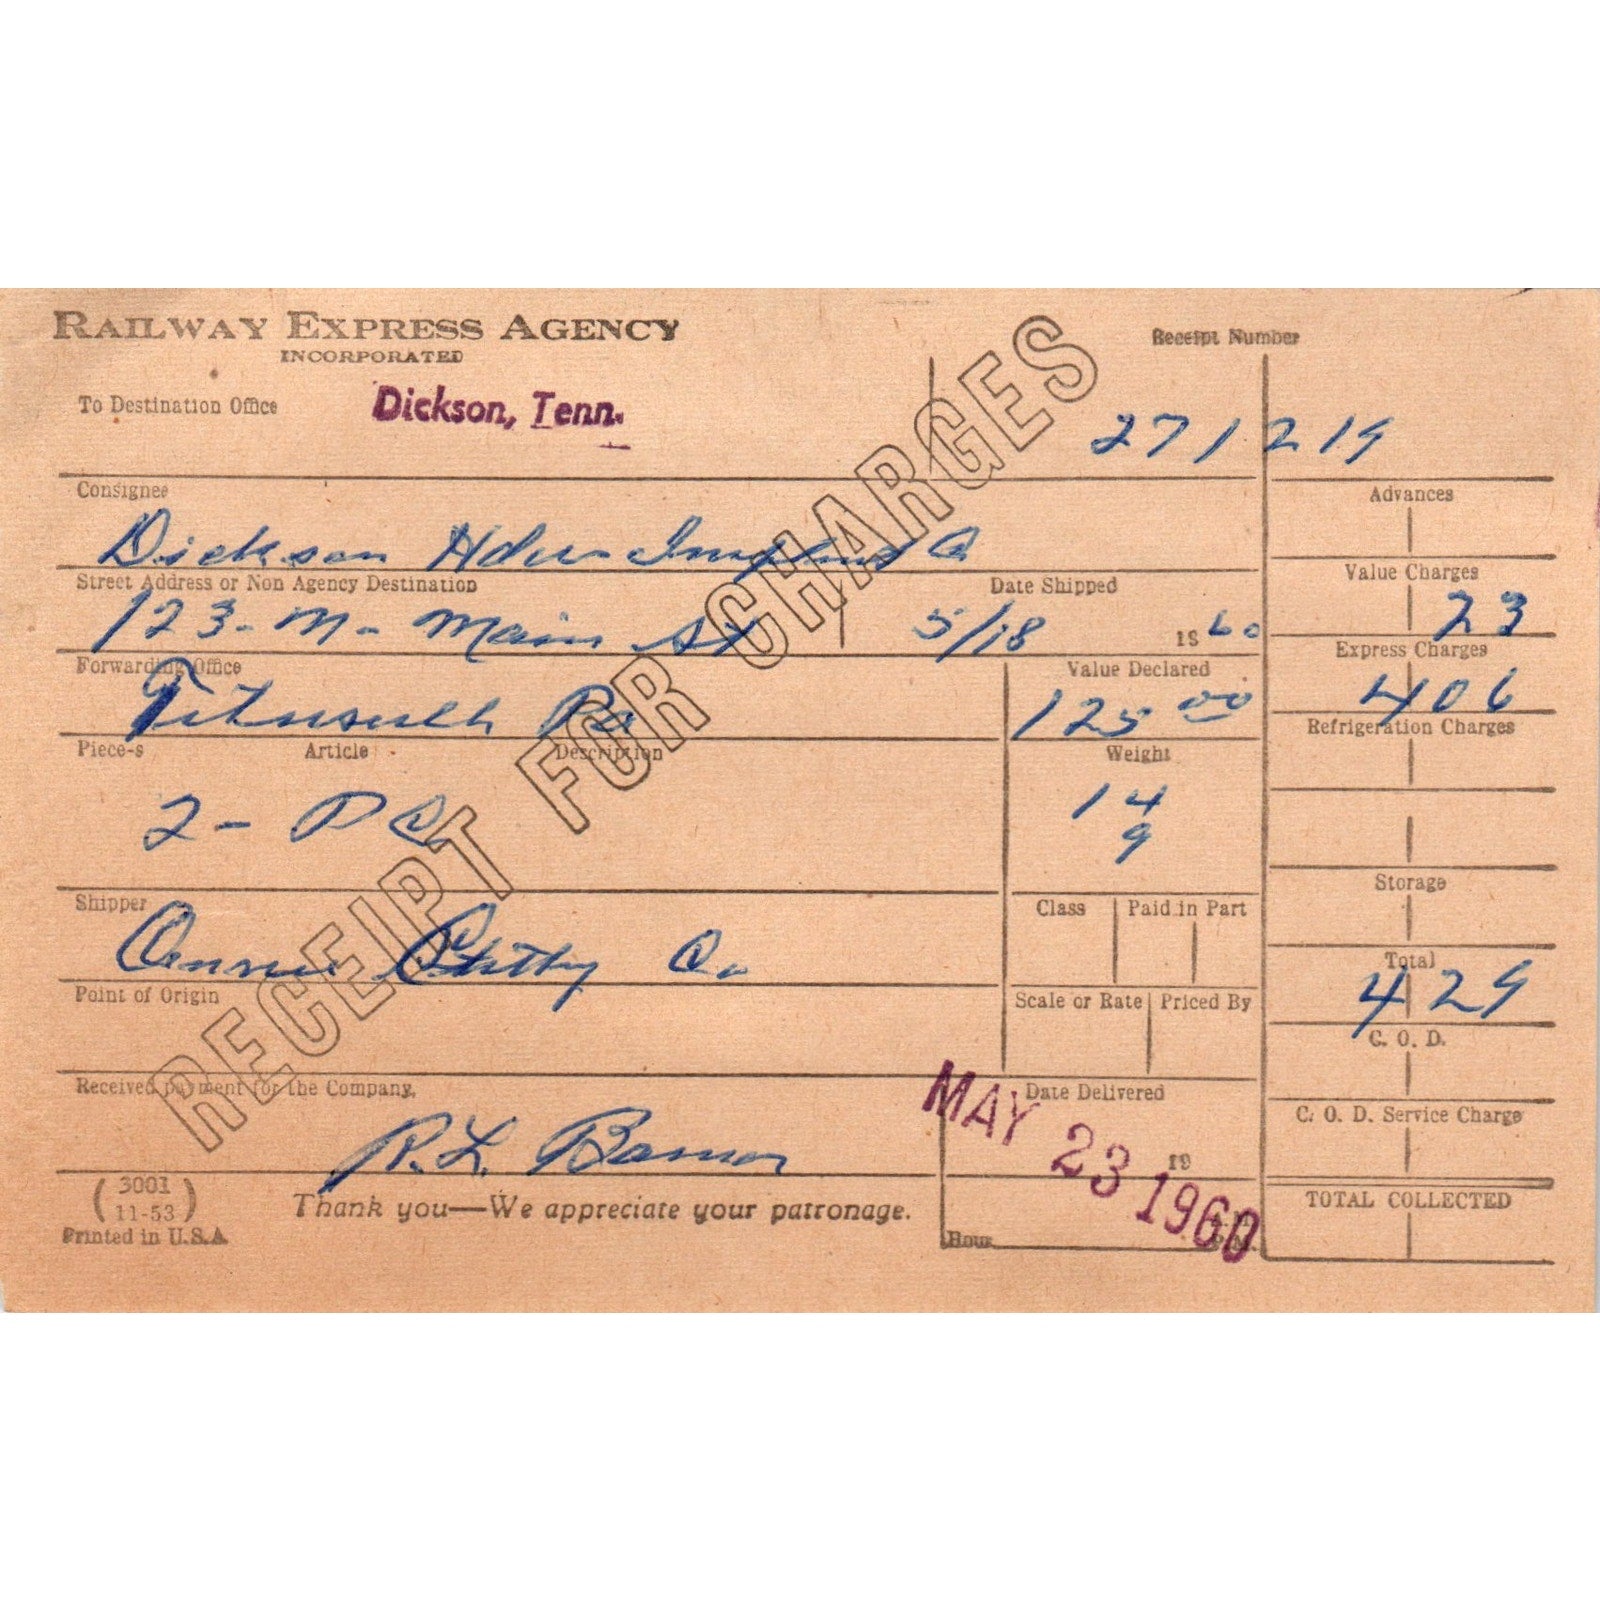 RAILWAY EXPRESS AGENCY
INCORPORATED
Receipt Number
To Destination Office Dickson, Tenn.
271219
Consignee
Dickson Hdw
Street Address or Non Agency Destination
123- Main St
Date Shipped
5/18 1960
Forwarding Office
Pa
Value Declared
125 00
Piece-s Article Description
2 - PC
Weight
14
9
Shipper
Co
Class Paid in Part
Point of Origin
Scale or Rate Priced By
Received payment for the Company,
R. L.
Date Delivered
19
MAY 23 1960
Hour
Advances
Value Charges
23
Express Charges
406
Refrigeration Charges
Storage
Total
429
C. O. D.
C. O. D. Service Charge
TOTAL COLLECTED
RECEIPT FOR CHARGES
(3001
11-53)
Printed in U.S.A
Thank you—We appreciate your patronage.